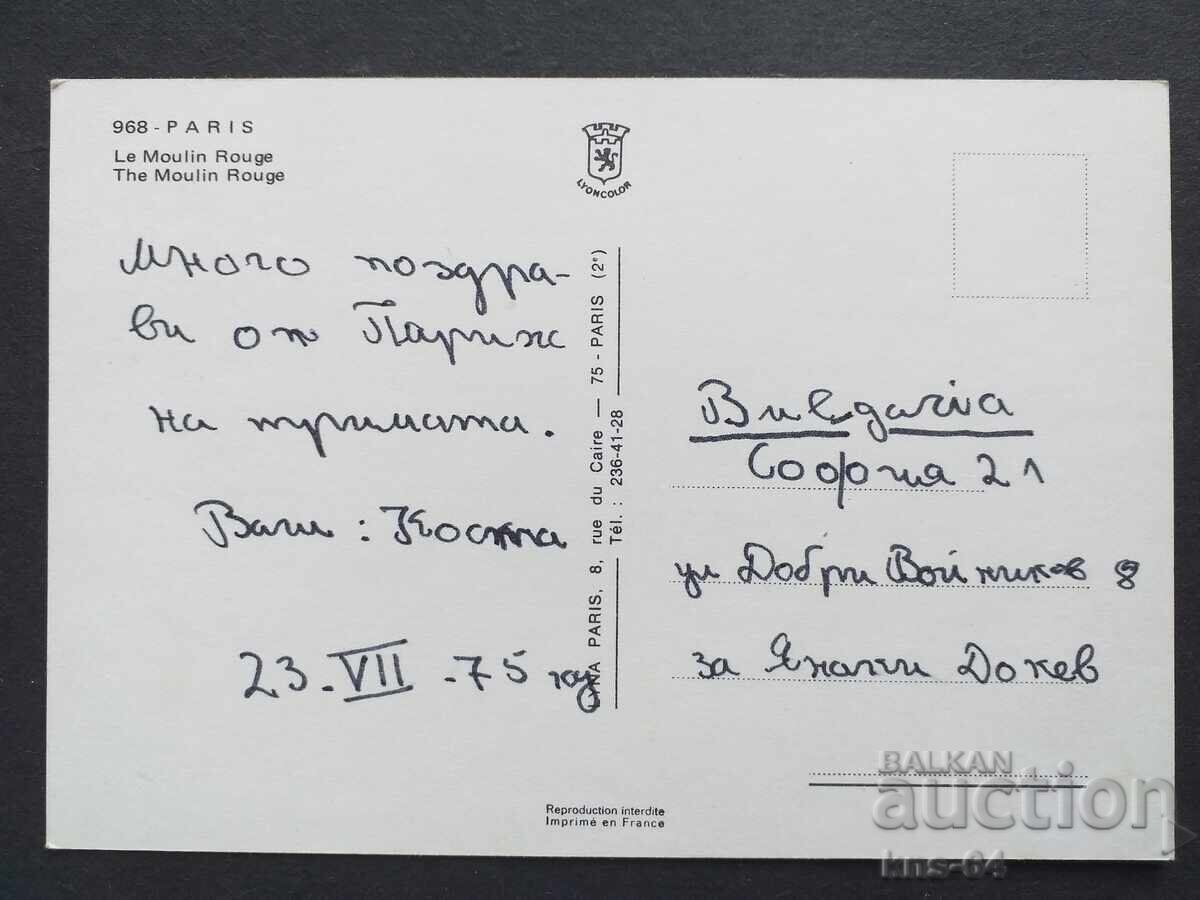 968 - PARIS
Le Moulin Rouge
The Moulin Rouge
LYONCOLOR
Много поздра-
ви от Париж
на тримата.
Ваш: Коста
23.VII.-75 год
PARIS, 8, rue du Caire — 75 - PARIS (2e)
Tél. : 236-41-28
България
София 21
ул Добри Войников 8
за Яначки Докев
Reproduction interdite
Imprimé en France
BALKAN
auction
kns-64